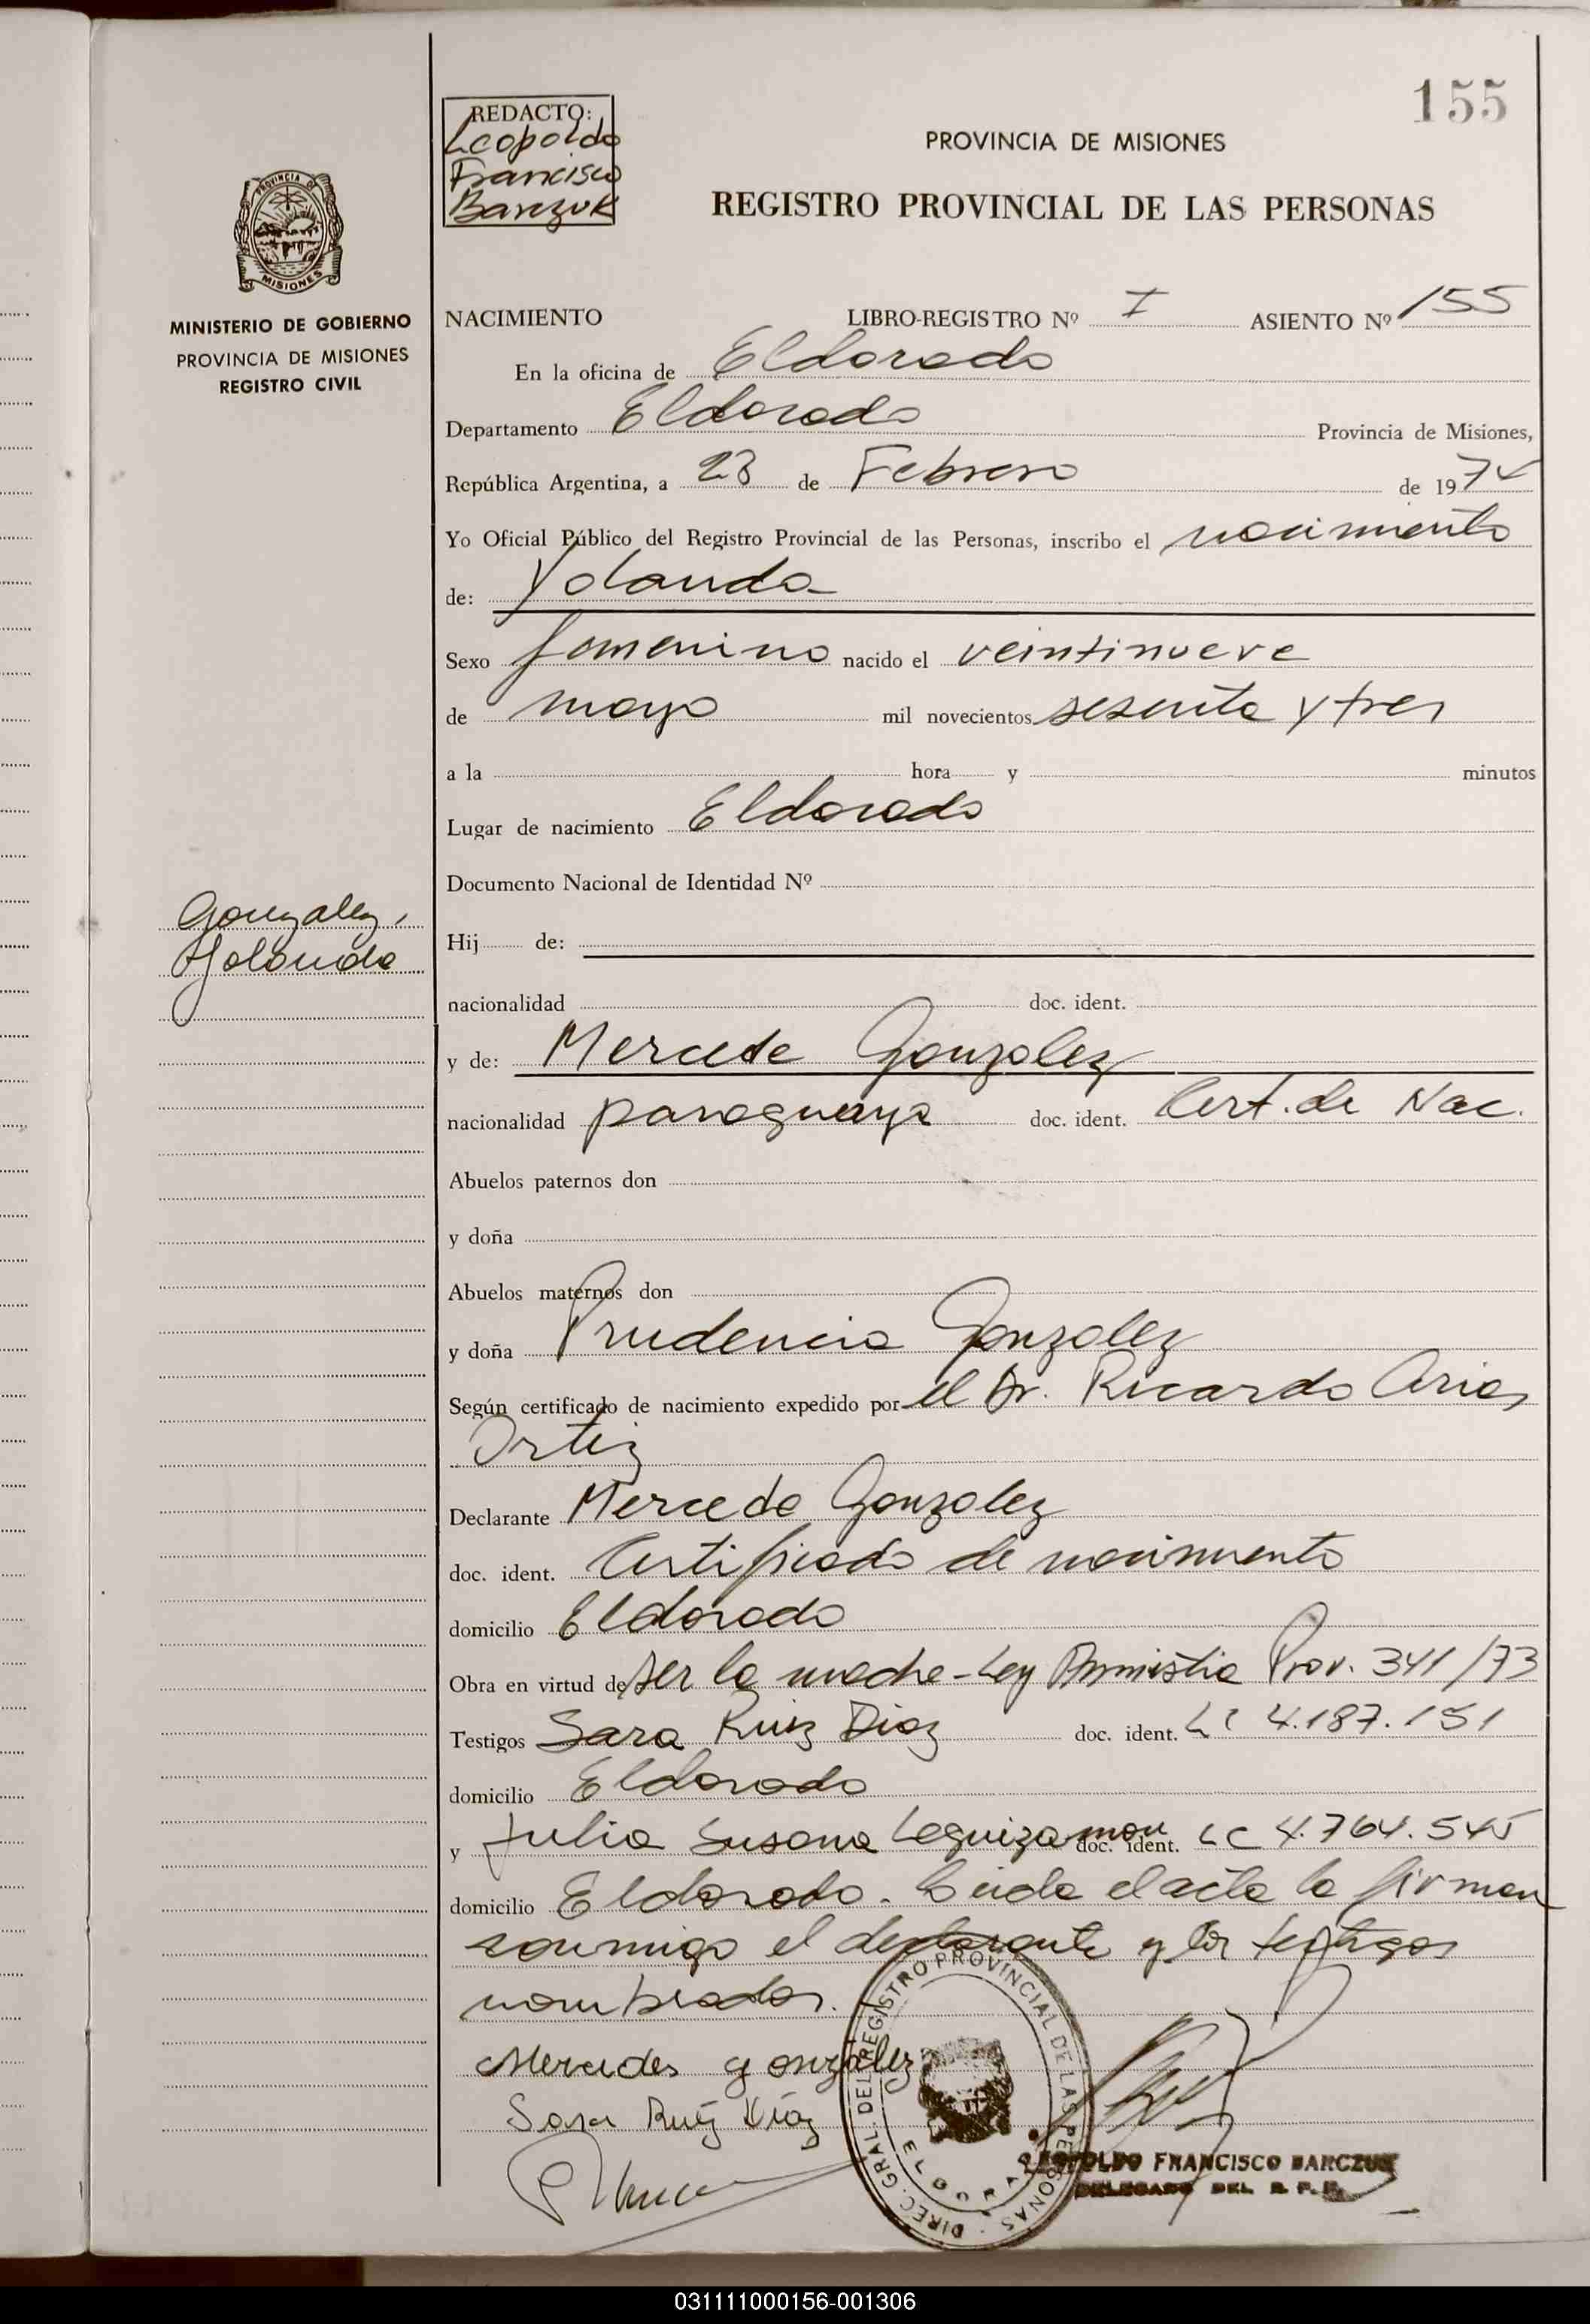 155
REDACTO:
Leopoldo
Francisco
Barczuk
PROVINCIA DE MISIONES
REGISTRO PROVINCIAL DE LAS PERSONAS
PROVINCIA DE
MISIONES
MINISTERIO DE GOBIERNO
PROVINCIA DE MISIONES
REGISTRO CIVIL
NACIMIENTO LIBRO-REGISTRO Nº I ASIENTO Nº 155
En la oficina de Eldorado
Departamento Eldorado Provincia de Misiones,
República Argentina, a 23 de Febrero de 1974
Yo Oficial Público del Registro Provincial de las Personas, inscribo el nacimiento
de: Yolanda
Sexo femenino nacido el veintinueve
de mayo mil novecientos sesenta y tres
a la hora y minutos
Lugar de nacimiento Eldorado
Documento Nacional de Identidad Nº
Gonzalez,
Yolanda
Hij de:
nacionalidad doc. ident.
y de: Mercede Gonzalez
nacionalidad paraguaya doc. ident. Cert. de Nac.
Abuelos paternos don
y doña
Abuelos maternos don
y doña Prudencia Gonzalez
Según certificado de nacimiento expedido por el Dr. Ricardo Arias
Ortiz
Declarante Mercede Gonzalez
doc. ident. Certificado de nacimiento
domicilio Eldorado
Obra en virtud de ser la madre - Ley Amnistia Prov. 341/73
Testigos Sara Ruiz Diaz doc. ident. LC 4.187.151
domicilio Eldorado
y Julia Susana Leguizamon doc. ident. LC 4.764.545
domicilio Eldorado. Leida el acta la firman
conmigo el declarante y los testigos
nombrados.
Mercedes gonzalez
Sara Ruiz Diaz
DIREC. GRAL. DEL REGISTRO PROVINCIAL DE LAS PERSONAS
ELDORADO
LEOPOLDO FRANCISCO BARCZUK
DELEGADO DEL R. P. P.
031111000156-001306